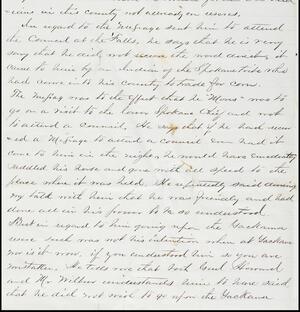 in this county not
In regard to the message sent him to attend
the Council at the Falls, he says that he is very
sorry that he did not the word direct, it
came to him by an Indian of the Spokane tribe who
had come in to his county to trade for corn.
The message was to the effect that he "Mons" was to
go on a visit to the lower Spokane and not
to attend a council. He says that if he had
a message to attend a council even had it
come to him in the night, he would have immediately
saddled his horse and gone with all speed to the
place when it was held. He repeatedly said during
my talk with him that he was friendly and had
done all in his power to be so understood.
But in regard to him going upon the Yackama
such was not his intention when at Yackama
nor is it now, if you understood him so you are
mistaken. He tells me that both Genl Howard
and Mr Wilbur understands him to have said
that he did not wish to go upon the Yackama